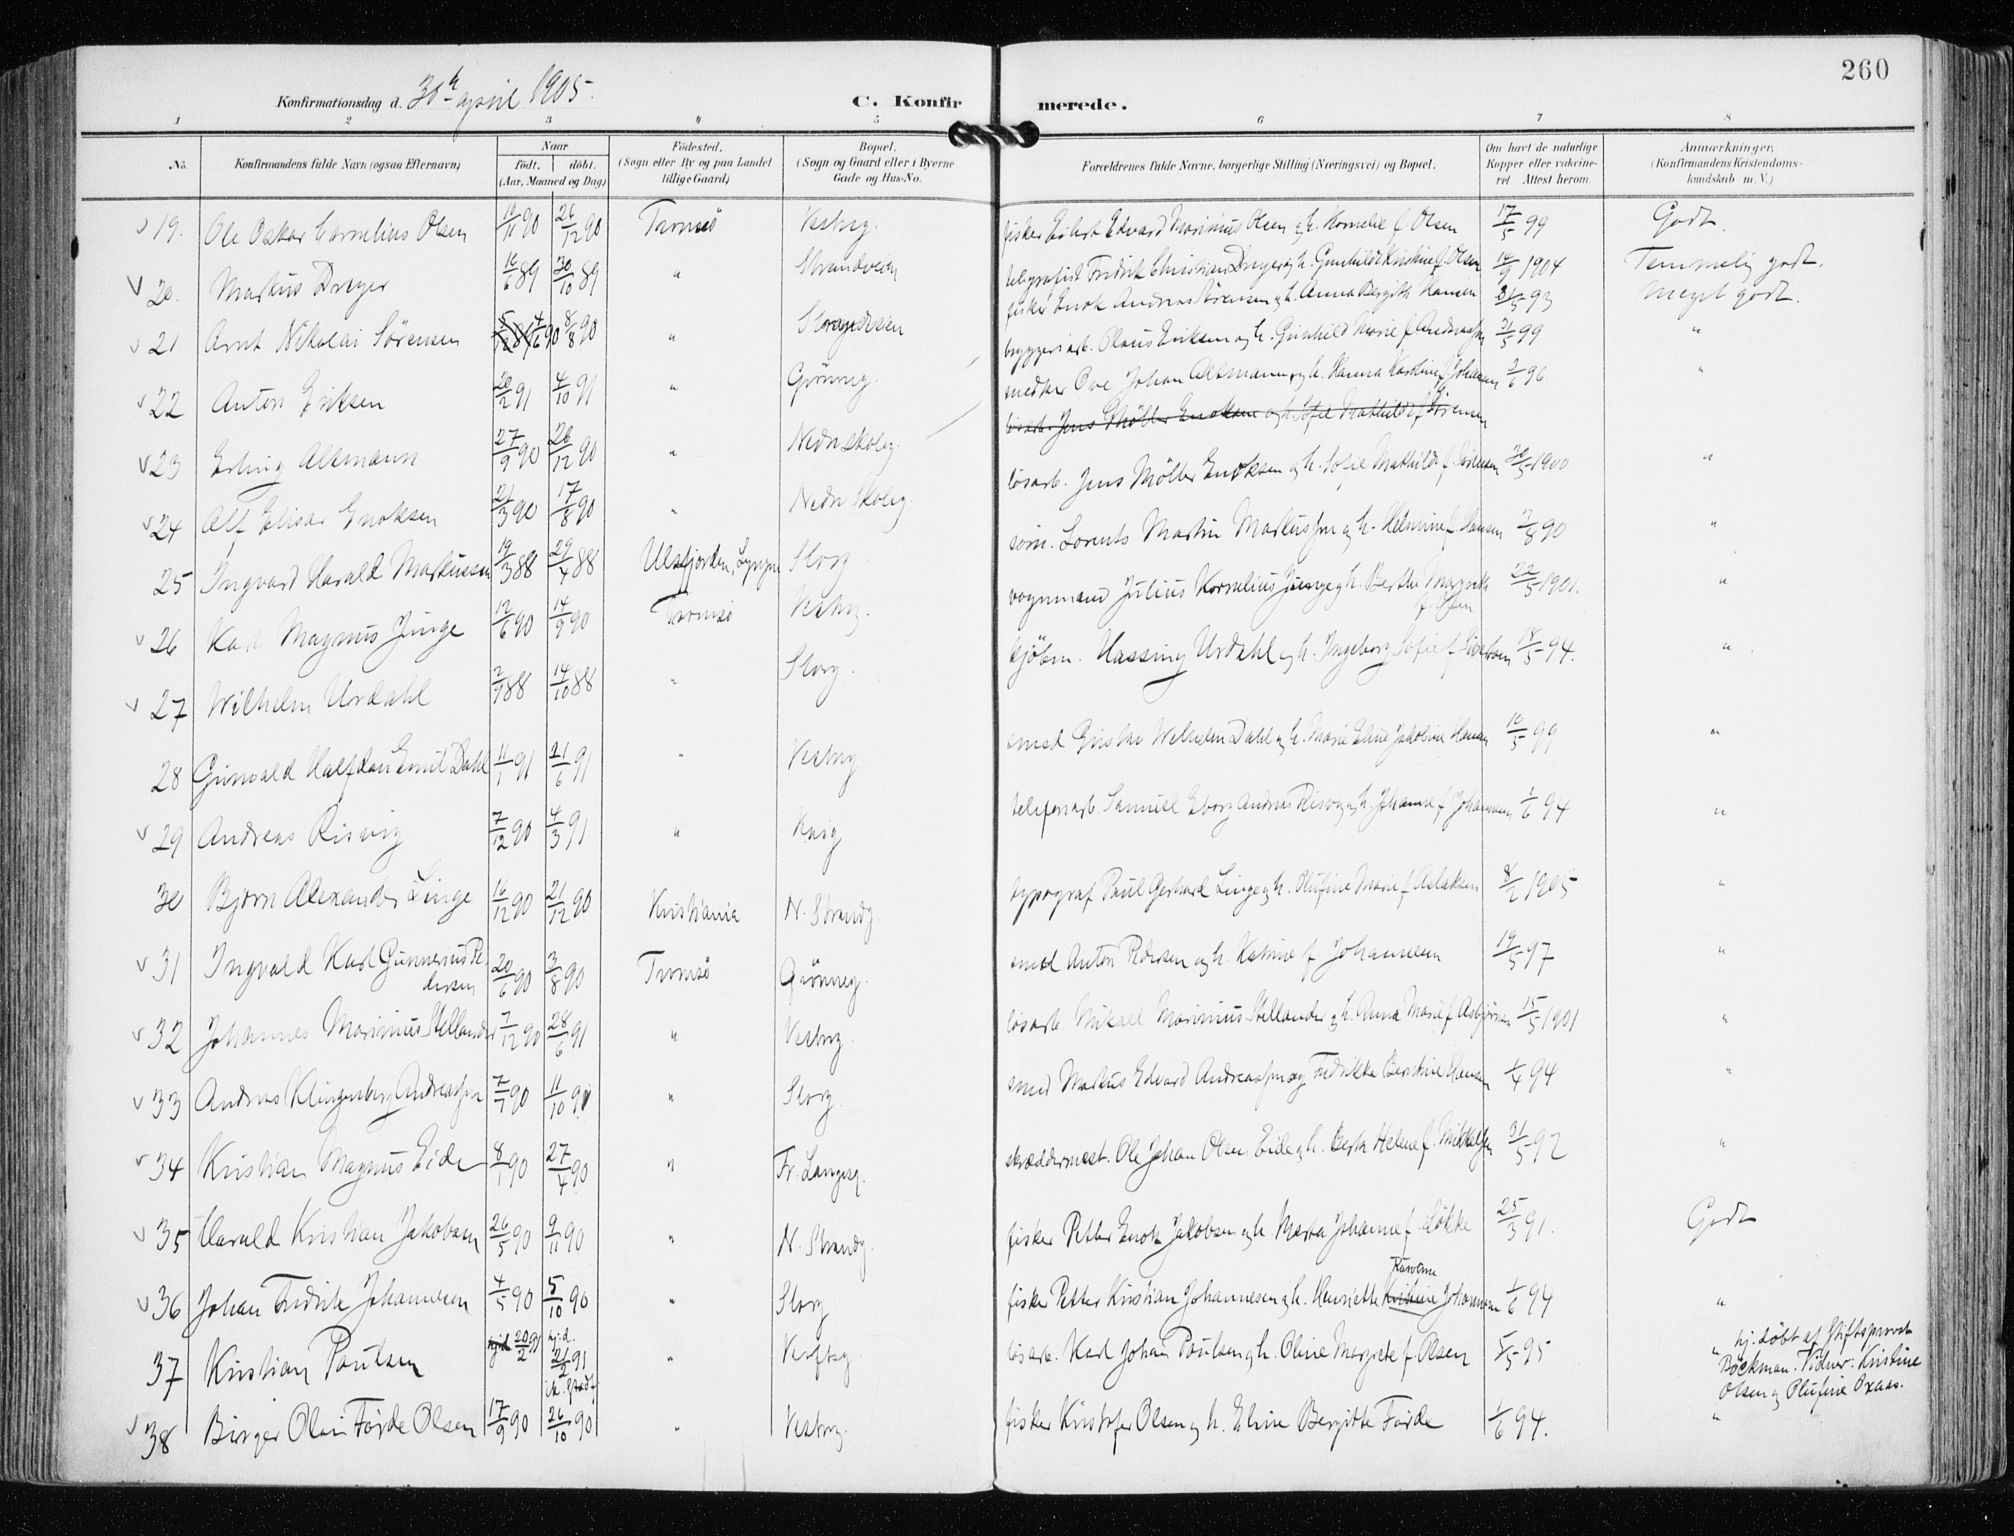 260
Konfirmationsdag d. 30te april 1905.
C. Konfirmerede.
1 2 3 4 5 6 7 8
No. Konfirmandens fulde Navn (ogsaa Efternavn) Naar født. døbt. (Aar, Maaned og Dag) Fødested. (Sogn eller By og paa Landet tillige Gaard) Bopæl. (Sogn og Gaard eller i Byerne Gade og Hus-No. Forældrenes fulde Navne, borgerlige Stilling (Næringsvei) og Bopæl. Om havt de naturlige Kopper eller vakcineret Attest herom. Anmærkninger. (Konfirmandens Kristendomskundskab m. V.)
19. Ole Oskar Cornelius Olsen 19/11 90 26/12 90 Tromsö Vestreg. fisker Eilert Edvard Marinius Olsen og h. Kornelie f. Olsen 17/5 99 Godt.
20. Markus Dreyer 16/6 89 30/10 89 " Strandvein telegrafist Fredrik Christian Dreyer og h. Gunhild Kristine f. Olsen 14/9 1904 Temmelig godt.
21 Arnt Nikolai Sörensen 4/6 90 8/8 90 " Storgd fisker Enok Andreas Sörensen og h. Anna Bergith Hansen 31/5 93 Meget godt.
22 Anton Eriksen 20/2 91 4/10 91 " Grönneg. bryggeriarb. Olaus Eriksen og h. Gunhild Marie f. Andreassen 31/5 99 "
23 Erling Altmann 27/9 90 26/12 90 " Nedre Skoleg. Ove Johan Altmann og h. Hanna Karoline f. Johansen 2/6 96 "
lösarb. Jens Möller Enoksen og h. Sofie Mathilde f. Sörensen
24 Alf Elisar Enoksen 21/3 90 17/8 90 " Nedre Skoleg. lösarb. Jens Möller Enoksen og h. Sofie Mathilde f. Sörensen 20/5 1900 "
25 Ingvard Harald Markussen 19/3 88 29/4 88 Ulsfjorden, Lyngen Storg söm. Lorents Martin Markussen og h. Helmine f. Hansen 2/8 90 "
26 Karl Magnus Junge 12/6 90 14/9 90 Tromsö Vestreg. vognmand Julius Kornelius Junge og h. Berthe Margrethe f. Olsen 22/5 1901. "
27 Wilhelm Urdahl 2/7 88 14/10 88 " Storg. kjöbm. Hassing Urdahl og h. Ingeborg Sofie f. 18/5 94. "
28 Gunvald Halfdan Emil Dahl 11/1 91 21/6 91 " Vestreg smed Gustav Wilhelm Dahl og h. Marie Eline Jakobine Hansen 16/5 99 "
29 Andreas Risvig 7/12 90 4/3 91 " telefonarb. Samuel Andreas Risvig og h. Johanne f. Johannesen 1/6 94 "
30 Björn Alexander Linge 16/12 90 21/12 90 Kristiania N. Strandg. typograf Paul Gerhard Linge og h. Olufine Marie f. Aslaksen 8/2 1905 "
31 Ingvald Karl Gunnerius Pedersen 20/6 90 3/8 90 Tromsö Grönneg. smed Anton Pedersen og h. Katrine f. Johannesen 19/5 97 "
32 Johannes Marinius Stellander 7/12 90 28/6 91 " Vestreg. lösarb. Mikael Marinius Stellander og h. Anna Marie f. Asbjörnsen 15/5 1901 "
33 Andreas Klingenberg Andreassen 7/7 90 11/10 90 " Storg. smed Markus Edvard Andreassen og Fredrikke Berntine Hansen 1/4 94 "
34 Kristian Magnus Eide 8/1 90 27/4 90 " Fr. Langesg. skræddermest. Ole Johan Olsen Eide og h. Berta Helene f. Mikkelsen 31/5 92 "
35 Harald Kristian Jakobsen 26/5 90 9/11 90 " N. Strandg. fisker Petter Enok Jakobsen og h. Marta Johanne f. Lökke 25/3 91. Godt
36 Johan Fredrik Johannesen 4/5 90 5/10 90 " Storg fisker Petter Kristian Johannesen og h. Henriette Kristine Karoline Johannesen 1/6 94 "
37 Kristian Paulsen 20/2 91 hj.d. 21/2 91 " Verftsg. lösarb. Karl Johan Paulsen og h. Oline Margrete f. Olsen 5/5 95 " hj. döbt af Stiftsprovst Böckman. Vidner: Kristine Olsen og Olufine Oxaas.
38 Birger Olai Förde Olsen 17/9 90 26/10 90 " Vestreg. fisker Kristofer Olsen og h. Eline Bergitte Förde 1/6 94. "